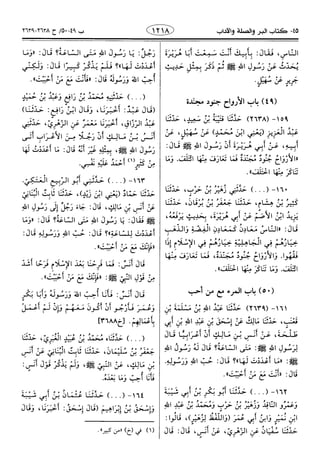 ٤٥- كتاب البر والصلة والآداب
١٢١٨
ب ٤٩-٥٠/ ح ٢٦٣٨-٢٦٣٩
النَّاسِ، فَقَالَ: بِأَبِيكَ أَنْتَ سَمِعْتَ أَبَا هُرَيْرَةَ
يُحَدِّثُ عَنْ رَسُولِ اللهِ ﷺ ثُمَّ ذَكَرَ بِمِثْلِ حَدِيثِ
جَرِيرٍ عَنْ سُهَيْلٍ.
(٤٩) باب الأرواح جنود مجندة
١٥٩- (٢٦٣٨) حَدَّثَنَا قُتَيْبَةُ بْنُ سَعِيدٍ، حَدَّثَنَا
عَبْدُ الْعَزِيزِ (يَعْنِي ابْنَ مُحَمَّدٍ) عَنْ سُهَيْلٍ، عَنْ
أَبِيهِ، عَنْ أَبِي هُرَيْرَةَ أَنَّ رَسُولَ اللهِ ﷺ قَالَ:
«الْأَرْوَاحُ جُنُودٌ مُجَنَّدَةٌ فَمَا تَعَارَفَ مِنْهَا ائْتَلَفَ، وَمَا
تَنَاكَرَ مِنْهَا اخْتَلَفَ».
١٦٠- (...) حَدَّثَنِي زُهَيْرُ بْنُ حَرْبٍ، حَدَّثَنَا
كَثِيرُ بْنُ هِشَامٍ، حَدَّثَنَا جَعْفَرُ بْنُ بُرْقَانَ، حَدَّثَنَا
يَزِيدُ ابْنُ الْأَصَمِّ عَنْ أَبِي هُرَيْرَةَ، بِحَدِيثٍ يَرْفَعُهُ،
قَالَ: «النَّاسُ مَعَادِنُ كَمَعَادِنِ الْفِضَّةِ وَالذَّهَبِ
خِيَارُهُمْ فِي الْجَاهِلِيَّةِ خِيَارُهُمْ فِي الْإِسْلَامِ إِذَا
فَقُهُوا. وَالْأَرْوَاحُ جُنُودٌ مُجَنَّدَةٌ، فَمَا تَعَارَفَ مِنْهَا
ائْتَلَفَ. وَمَا تَنَاكَرَ مِنْهَا اخْتَلَفَ».
(٥٠) باب المرء مع من أحب
١٦١- (٢٦٣٩) حَدَّثَنَا عَبْدُ اللهِ بْنُ مَسْلَمَةَ بْنِ
قَعْنَبٍ، حَدَّثَنَا مَالِكٌ عَنْ إِسْحَقَ بْنِ عَبْدِ اللهِ بْنِ أَبِي
طَلْحَةَ، عَنْ أَنَسِ بْنِ مَالِكٍ أَنَّ أَعْرَابِيًّا قَالَ
لِرَسُولِ اللهِ ﷺ: مَتَى السَّاعَةُ؟ قَالَ لَهُ رَسُولُ اللهِ
ﷺ: «مَا أَعْدَدْتَ لَهَا؟» قَالَ: حُبَّ اللهِ وَرَسُولِهِ.
قَالَ: «أَنْتَ مَعَ مَنْ أَحْبَبْتَ».
١٦٢- (...) حَدَّثَنَا أَبُو بَكْرِ بْنُ أَبِي شَيْبَةَ
وَعَمْرٌو النَّاقِدُ وَزُهَيْرُ بْنُ حَرْبٍ وَمُحَمَّدُ بْنُ عَبْدِ اللهِ
ابْنِ نُمَيْرٍ وَابْنُ أَبِي عُمَرَ (وَاللَّفْظُ لِزُهَيْرٍ)، قَالُوا:
حَدَّثَنَا سُفْيَانُ عَنِ الزُّهْرِيِّ، عَنْ أَنَسٍ، قَالَ: قَالَ
رَجُلٌ: يَا رَسُولَ اللهِ مَتَى السَّاعَةُ؟ قَالَ: «وَمَا
أَعْدَدْتَ لَهَا؟» فَلَمْ يَذْكُرْ كَثِيرًا. قَالَ: وَلَكِنِّي
أُحِبُّ اللهَ وَرَسُولَهُ قَالَ: «فَأَنْتَ مَعَ مَنْ أَحْبَبْتَ».
(...) حَدَّثَنِيهِ مُحَمَّدُ بْنُ رَافِعٍ وَعَبْدُ بْنُ حُمَيْدٍ
(قَالَ عَبْدٌ: أَخْبَرَنَا، وَقَالَ ابْنُ رَافِعٍ: حَدَّثَنَا)
عَبْدُ الرَّزَّاقِ، أَخْبَرَنَا مَعْمَرٌ عَنِ الزُّهْرِيِّ، حَدَّثَنِي
أَنَسُ بْنُ مَالِكٍ أَنَّ رَجُلًا مِنَ الْأَعْرَابِ أَتَى
رَسُولَ اللهِ ﷺ، بِمِثْلِهِ غَيْرَ أَنَّهُ قَالَ: مَا أَعْدَدْتُ لَهَا
مِنْ كَثِيرٍ(١) أَحْمَدُ عَلَيْهِ نَفْسِي.
١٦٣- (...) حَدَّثَنِي أَبُو الرَّبِيعِ الْعَتَكِيُّ،
حَدَّثَنَا حَمَّادٌ (يَعْنِي ابْنَ زَيْدٍ)، حَدَّثَنَا ثَابِتٌ الْبُنَانِيُّ
عَنْ أَنَسِ بْنِ مَالِكٍ، قَالَ: جَاءَ رَجُلٌ إِلَى رَسُولِ اللهِ
ﷺ فَقَالَ: يَا رَسُولَ اللهِ مَتَى السَّاعَةُ؟ قَالَ: «وَمَا
أَعْدَدْتَ لِلسَّاعَةِ؟» قَالَ: حُبَّ اللهِ وَرَسُولِهِ قَالَ:
«فَإِنَّكَ مَعَ مَنْ أَحْبَبْتَ».
قَالَ أَنَسٌ: فَمَا فَرِحْنَا بَعْدَ الْإِسْلَامِ فَرَحًا أَشَدَّ
مِنْ قَوْلِ النَّبِيِّ ﷺ: «فَإِنَّكَ مَعَ مَنْ أَحْبَبْتَ».
قَالَ أَنَسٌ: فَأَنَا أُحِبُّ اللهَ وَرَسُولَهُ وَأَبَا بَكْرٍ
وَعُمَرَ فَأَرْجُو أَنْ أَكُونَ مَعَهُمْ وَإِنْ لَمْ أَعْمَلْ
بِأَعْمَالِهِمْ. [خ٣٦٨٨]
(...) حَدَّثَنَاهُ مُحَمَّدُ بْنُ عُبَيْدٍ الْغُبَرِيُّ، حَدَّثَنَا
جَعْفَرُ بْنُ سُلَيْمَانَ، حَدَّثَنَا ثَابِتٌ الْبُنَانِيُّ عَنْ أَنَسِ
بْنِ مَالِكٍ، عَنِ النَّبِيِّ ﷺ، وَلَمْ يَذْكُرْ قَوْلَ أَنَسٍ:
فَأَنَا أُحِبُّ وَمَا بَعْدَهُ.
١٦٤- (...) حَدَّثَنَا عُثْمَانُ بْنُ أَبِي شَيْبَةَ
وَإِسْحَقُ بْنُ إِبْرَاهِيمَ (قَالَ إِسْحَقُ: أَخْبَرَنَا، وَقَالَ
(١) في (خ) «من كبير».